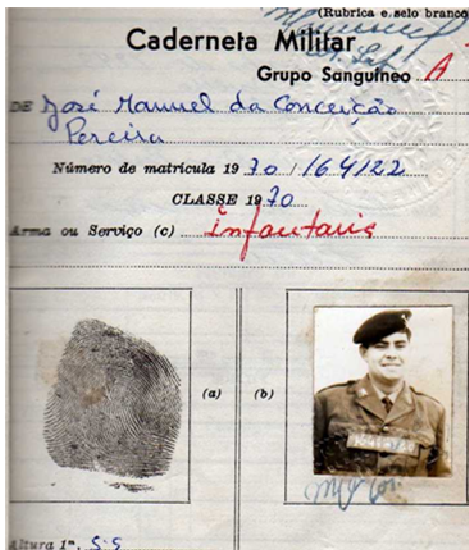 (Rubrica e selo branco
Caderneta Militar
Grupo Sanguíneo A
DE José Manuel da Conceição
Pereira
Número de matrícula 19 70 / 164122
CLASSE 19 70
Arma ou Serviço (c) Infantaria
(a) (b)
Altura 1m, 55